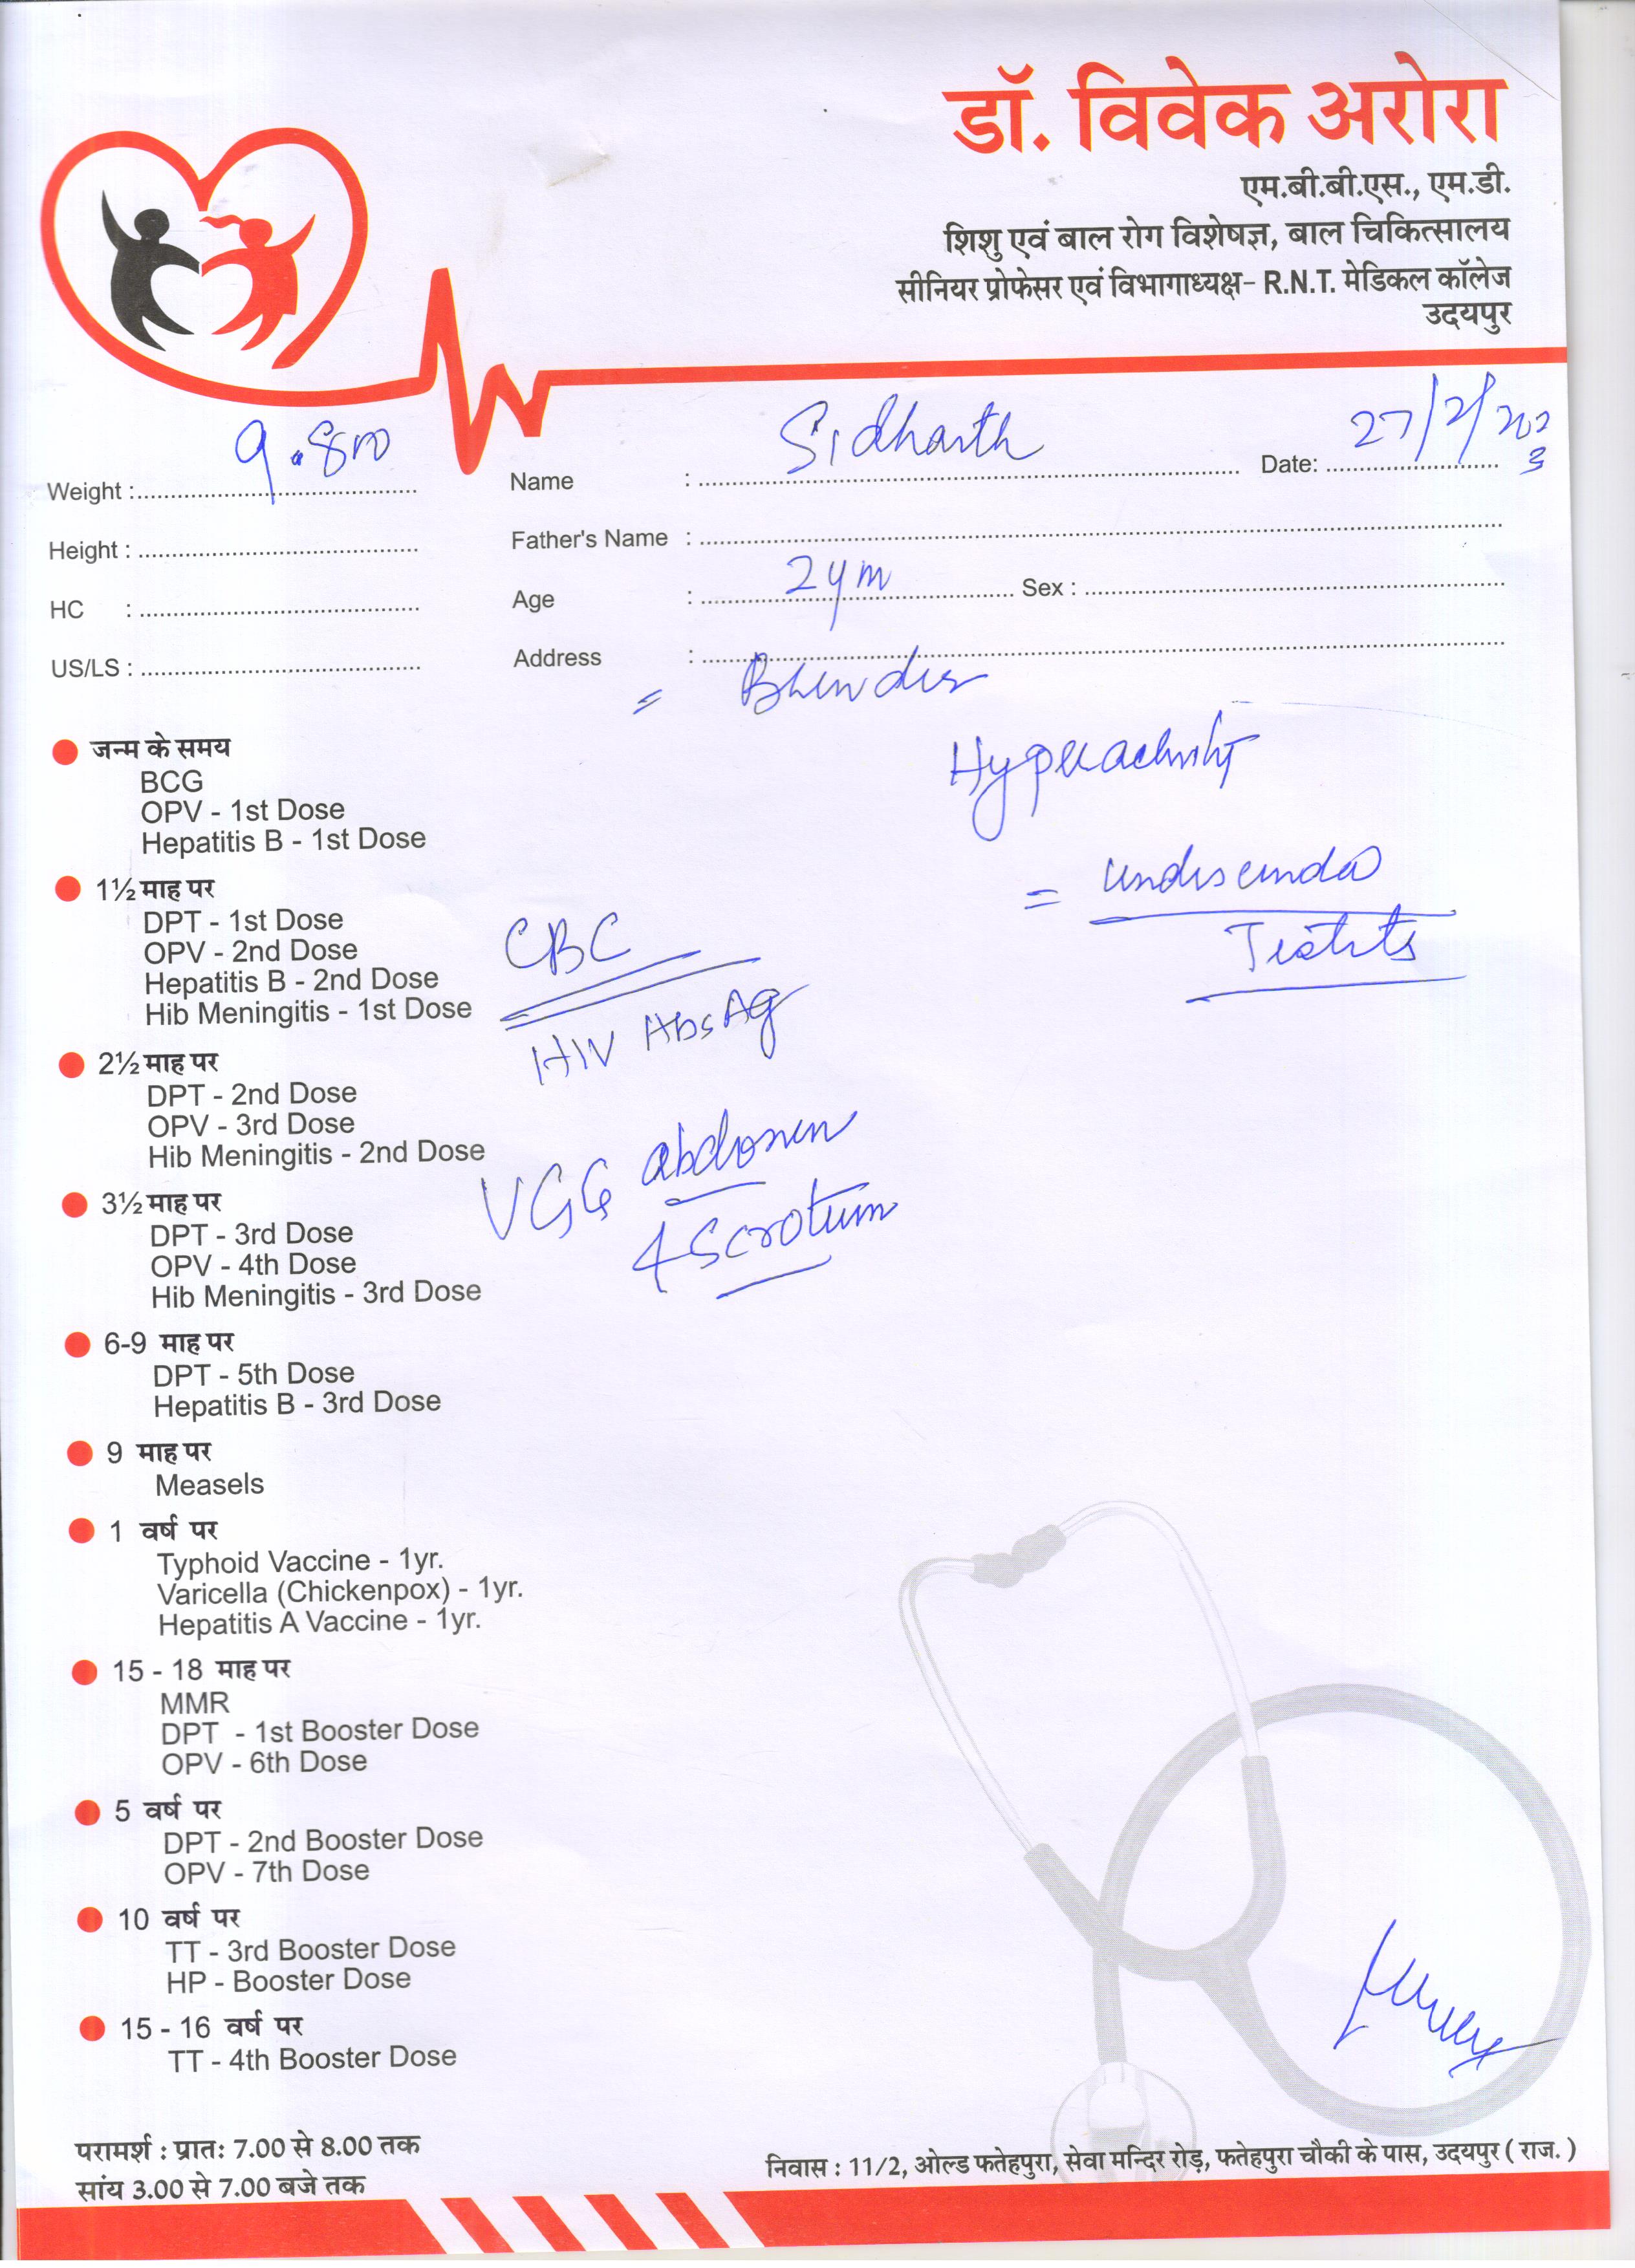 डॉ. विवेक अरोरा
एम.बी.बी.एस., एम.डी.
शिशु एवं बाल रोग विशेषज्ञ, बाल चिकित्सालय
सीनियर प्रोफेसर एवं विभागाध्यक्ष- R.N.T. मेडिकल कॉलेज
उदयपुर
Weight : 9.800 Name : Sidharth Date: 27/2/2023
Height : Father's Name :
HC : Age : 2ym Sex :
US/LS : Address :
= Bhinder
Hyperactivity
= undiscended
Testits
CBC
HIV HbsAg
VGG abdomen
& Scrotum
जन्म के समय
BCG
OPV - 1st Dose
Hepatitis B - 1st Dose
1½ माह पर
DPT - 1st Dose
OPV - 2nd Dose
Hepatitis B - 2nd Dose
Hib Meningitis - 1st Dose
2½ माह पर
DPT - 2nd Dose
OPV - 3rd Dose
Hib Meningitis - 2nd Dose
3½ माह पर
DPT - 3rd Dose
OPV - 4th Dose
Hib Meningitis - 3rd Dose
6-9 माह पर
DPT - 5th Dose
Hepatitis B - 3rd Dose
9 माह पर
Measels
1 वर्ष पर
Typhoid Vaccine - 1yr.
Varicella (Chickenpox) - 1yr.
Hepatitis A Vaccine - 1yr.
15 - 18 माह पर
MMR
DPT - 1st Booster Dose
OPV - 6th Dose
5 वर्ष पर
DPT - 2nd Booster Dose
OPV - 7th Dose
10 वर्ष पर
TT - 3rd Booster Dose
HP - Booster Dose
15 - 16 वर्ष पर
TT - 4th Booster Dose
परामर्श : प्रातः 7.00 से 8.00 तक
सांय 3.00 से 7.00 बजे तक
निवास : 11/2, ओल्ड फतेहपुरा, सेवा मन्दिर रोड़, फतेहपुरा चौकी के पास, उदयपुर ( राज. )